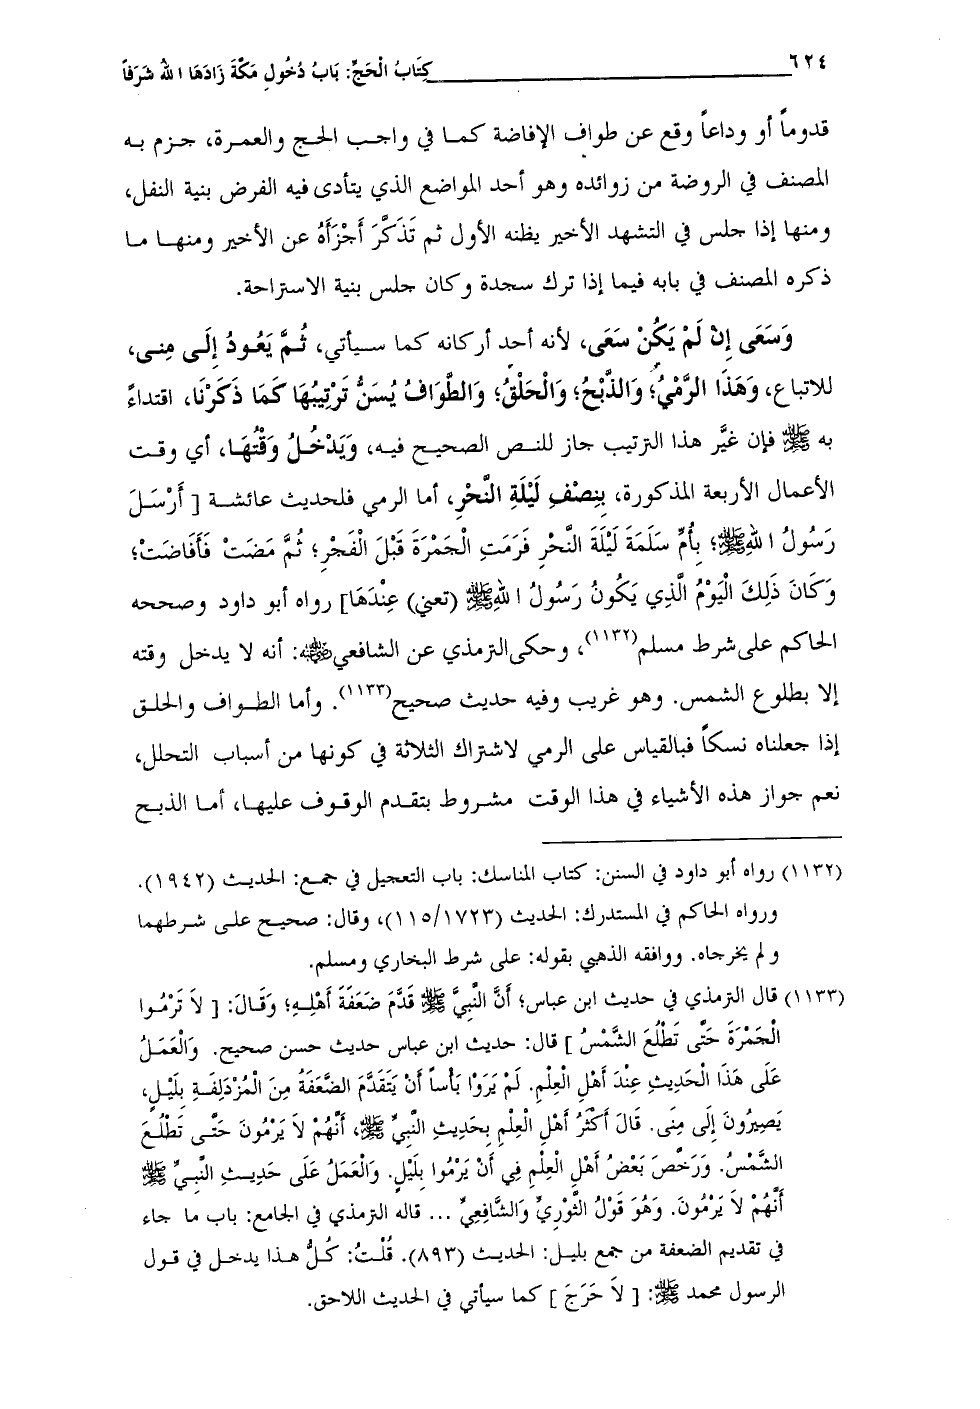 ٦٢٤
كِتَابُ الْحَجِّ: بَابُ دُخُولِ مَكَّةَ زَادَهَا اللهُ شَرَفاً
قدوماً أو وداعاً وقع عن طواف الإفاضة كما في واجب الحج والعمرة، جزم به
المصنف في الروضة من زوائده وهو أحد المواضع الذي يتأدى فيه الفرض بنية النفل،
ومنها إذا جلس في التشهد الأخير يظنه الأول ثم تَذَكَّرَ أَجْزَأَهُ عن الأخير ومنها ما
ذكره المصنف في بابه فيما إذا ترك سجدة وكان جلس بنية الاستراحة.
وَسَعَى إِنْ لَمْ يَكُنْ سَعَى، لأنه أحد أركانه كما سيأتي، ثُمَّ يَعُودُ إِلَى مِنى،
للاتباع، وَهَذَا الرَّمْيُ؛ وَالذَّبْحُ؛ وَالْحَلْقُ؛ وَالطَّوَافُ يُسَنُّ تَرْتِيبُهَا كَمَا ذَكَرْنَا، اقتداءً
به ﷺ فإن غيَّر هذا الترتيب جاز للنص الصحيح فيه، وَيَدْخُلُ وَقْتُهَا، أي وقت
الأعمال الأربعة المذكورة، بِنِصْفِ لَيْلَةِ النَّحْرِ، أما الرمي فلحديث عائشة [ أَرْسَلَ
رَسُولُ اللهِ ﷺ؛ بِأُمِّ سَلَمَةَ لَيْلَةَ النَّحْرِ فَرَمَتِ الْجَمْرَةَ قَبْلَ الْفَجْرِ؛ ثُمَّ مَضَتْ فَأَفَاضَتْ؛
وَكَانَ ذَلِكَ الْيَوْمُ الَّذِي يَكُونُ رَسُولُ اللهِ ﷺ (تعني) عِنْدَهَا] رواه أبو داود وصححه
الحاكم على شرط مسلم(١١٣٢)، وحكى الترمذي عن الشافعي ﷺ: أنه لا يدخل وقته
إلا بطلوع الشمس. وهو غريب وفيه حديث صحيح(١١٣٣). وأما الطواف والحلق
إذا جعلناه نسكاً فبالقياس على الرمي لاشتراك الثلاثة في كونها من أسباب التحلل،
نعم جواز هذه الأشياء في هذا الوقت مشروط بتقدم الوقوف عليها، أما الذبح
(١١٣٢) رواه أبو داود في السنن: كتاب المناسك: باب التعجيل في جمع: الحديث (١٩٤٢).
ورواه الحاكم في المستدرك: الحديث (١١٥/١٧٢٣)، وقال: صحيح على شرطهما
ولم يخرجاه. ووافقه الذهبي بقوله: على شرط البخاري ومسلم.
(١١٣٣) قال الترمذي في حديث ابن عباس؛ أَنَّ النَّبِيَّ ﷺ قَدَّمَ ضَعَفَةَ أَهْلِهِ؛ وَقَالَ: [ لاَ تَرْمُوا
الْجَمْرَةَ حَتَّى تَطْلُعَ الشَّمْسُ ] قال: حديث ابن عباس حديث حسن صحيح. وَالْعَمَلُ
عَلَى هَذَا الْحَدِيثِ عِنْدَ أَهْلِ الْعِلْمِ. لَمْ يَرَوْا بَأْساً أَنْ يَتَقَدَّمَ الضَّعَفَةُ مِنَ الْمُزْدَلِفَةِ بِلَيْلٍ،
يَصِيرُونَ إِلَى مِنَى. قَالَ أَكْثَرُ أَهْلِ الْعِلْمِ بِحَدِيثِ النَّبِيِّ ﷺ، أَنَّهُمْ لاَ يَرْمُونَ حَتَّى تَطْلُعَ
الشَّمْسُ. وَرَخَّصَ بَعْضُ أَهْلِ الْعِلْمِ فِي أَنْ يَرْمُوا بِلَيْلٍ. وَالْعَمَلُ عَلَى حَدِيثِ النَّبِيِّ ﷺ
أَنَّهُمْ لاَ يَرْمُونَ. وَهُوَ قَوْلُ الثَّوْرِيِّ وَالشَّافِعِيِّ ... قاله الترمذي في الجامع: باب ما جاء
في تقديم الضعفة من جمع بليل: الحديث (٨٩٣). قُلْتُ: كُلُّ هذا يدخل في قول
الرسول محمد ﷺ: [ لاَ حَرَجَ ] كما سيأتي في الحديث اللاحق.